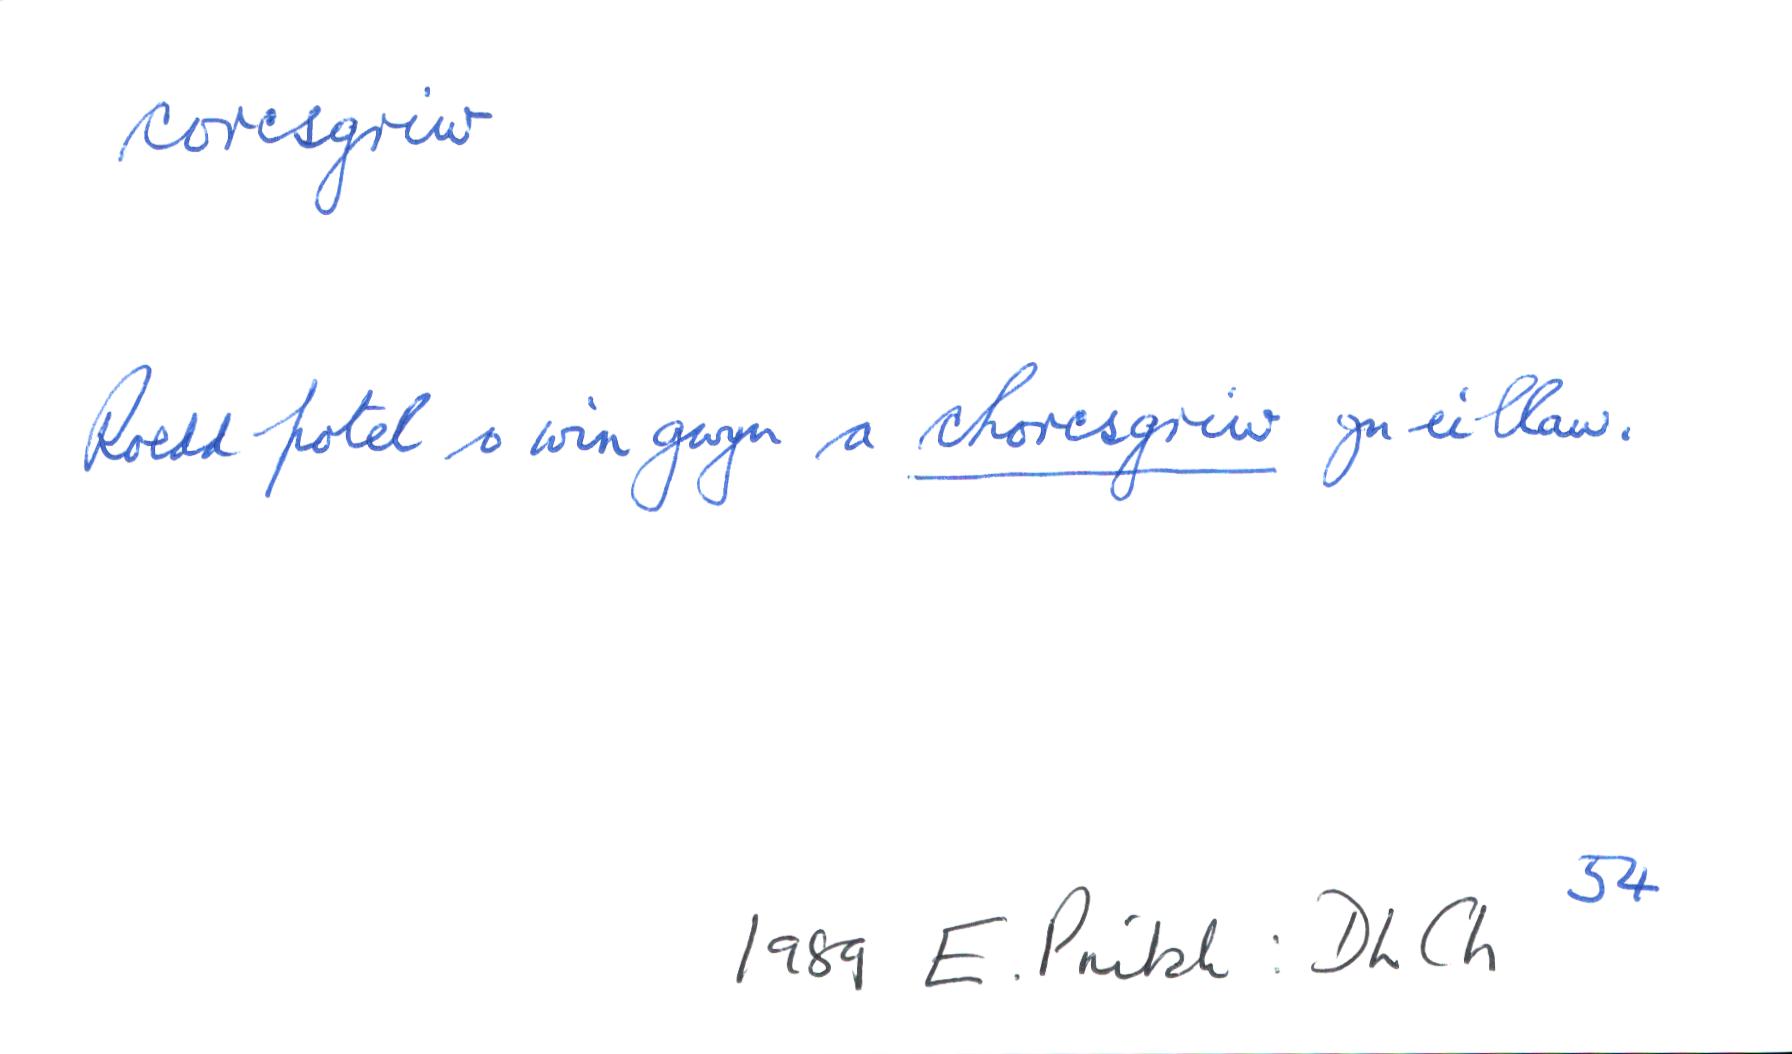 corcsgriw
Roedd potel o win gwyn a chorcsgriw yn ei llaw.
54
1989 E. Pritch : DLCh